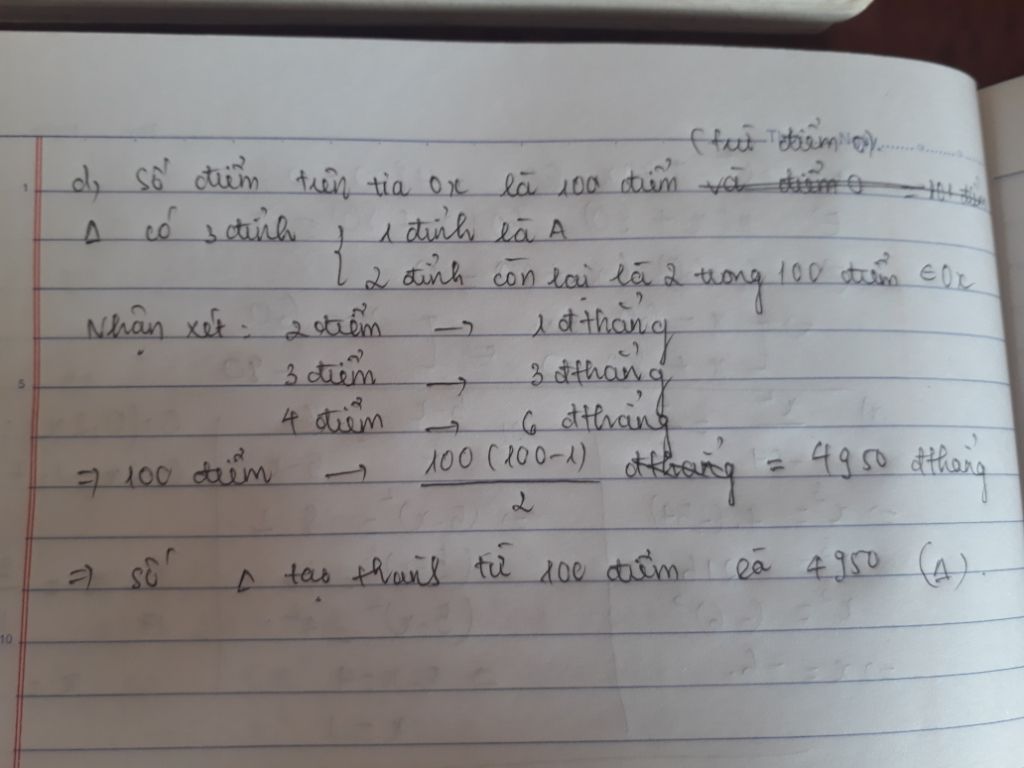 (trừ điểm O).
d, Số điểm trên tia Ox là 100 điểm và điểm O = 101 điểm
Δ có 3 đỉnh { 1 đỉnh là A
2 đỉnh còn lại là 2 trong 100 điểm ∈ Ox
Nhận xét: 2 điểm → 1 đthẳng
3 điểm → 3 đthẳng
4 điểm → 6 đthẳng
⇒ 100 điểm → 100 (100-1) / 2 đthẳng = 4950 đthẳng
⇒ số Δ tạo thành từ 100 điểm là 4950 (Δ).
5
10